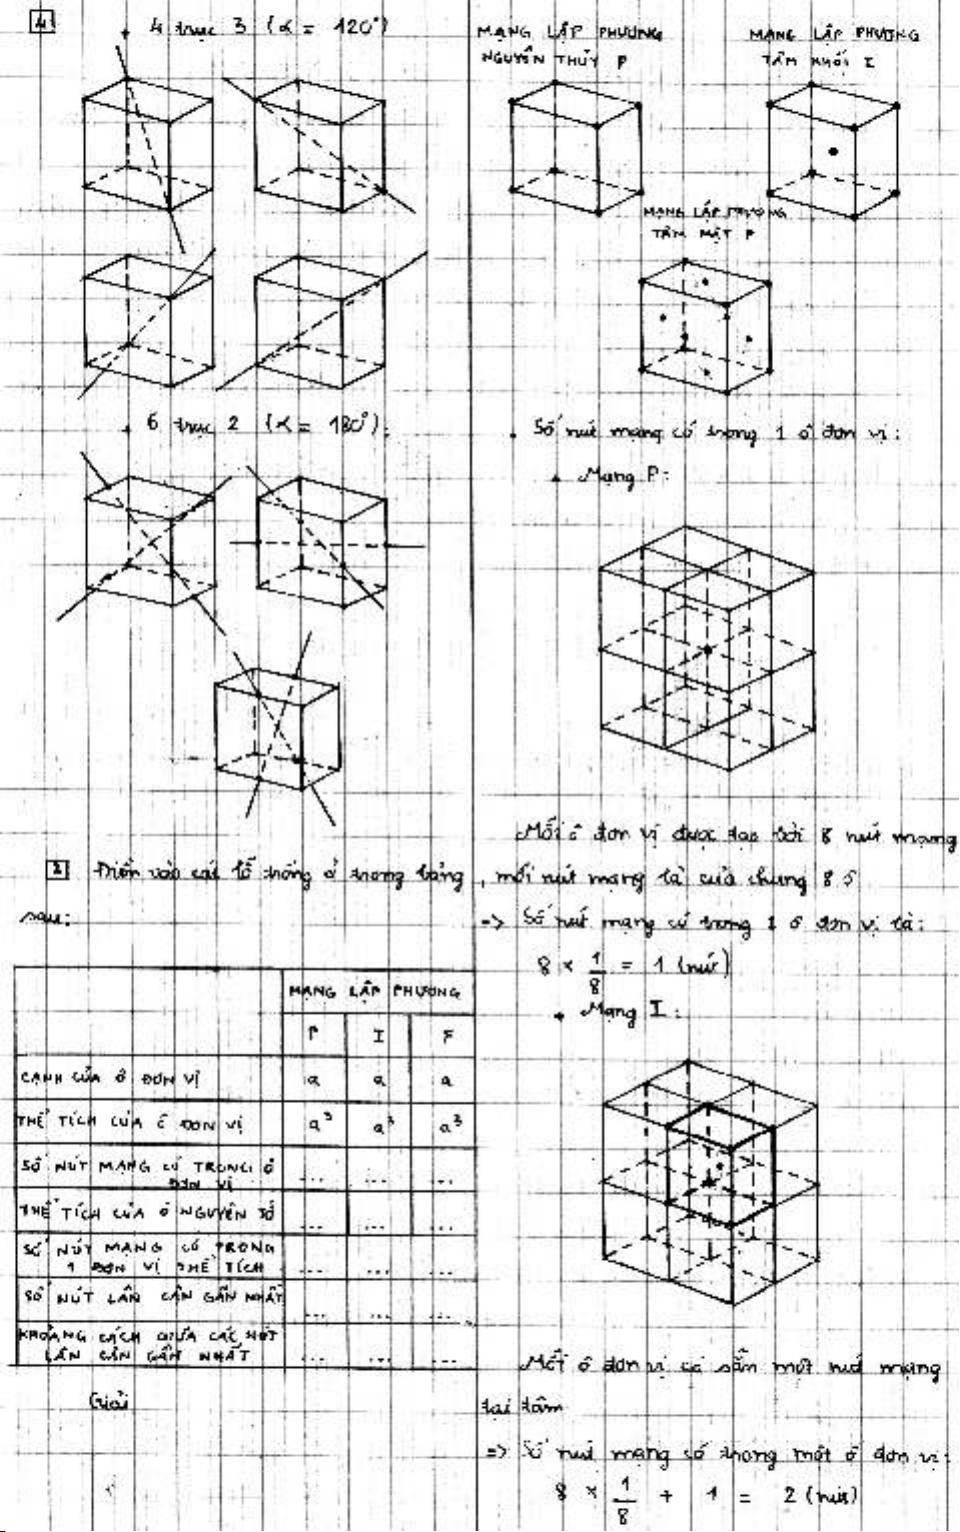 4
+ 4 trục 3 (α = 120°)
+ 6 trục 2 (α = 180°):
2 Điền vào các lỗ trống ở trong bảng
sau:
MẠNG LẬP PHƯƠNG
P I F
CẠNH CỦA Ô ĐƠN VỊ a a a
THỂ TÍCH CỦA Ô ĐƠN VỊ a³ a³ a³
SỐ NÚT MẠNG CÓ TRONG Ô
ĐƠN VỊ ... ... ...
THỂ TÍCH CỦA Ô NGUYÊN TỐ ... ... ...
SỐ NÚT MẠNG CÓ TRONG
1 ĐƠN VỊ THỂ TÍCH ... ... ...
SỐ NÚT LÂN CẬN GẦN NHẤT ... ... ...
KHOẢNG CÁCH GIỮA CÁC NÚT
LÂN CẬN GẦN NHẤT ... ... ...
Giải
MẠNG LẬP PHƯƠNG
NGUYÊN THỦY P
MẠNG LẬP PHƯƠNG
TÂM KHỐI I
MẠNG LẬP PHƯƠNG
TÂM MẶT F
. Số nút mạng có trong 1 ô đơn vị:
+ Mạng P:
Mỗi ô đơn vị được tạo bởi 8 nút mạng
, mỗi nút mạng là của chung 8 ô
=> Số nút mạng có trong 1 ô đơn vị là:
8 × 1/8 = 1 (nút)
+ Mạng I:
Mỗi ô đơn vị có sẵn một nút mạng
tại tâm
=> Số nút mạng có trong một ô đơn vị:
8 × 1/8 + 1 = 2 (nút)